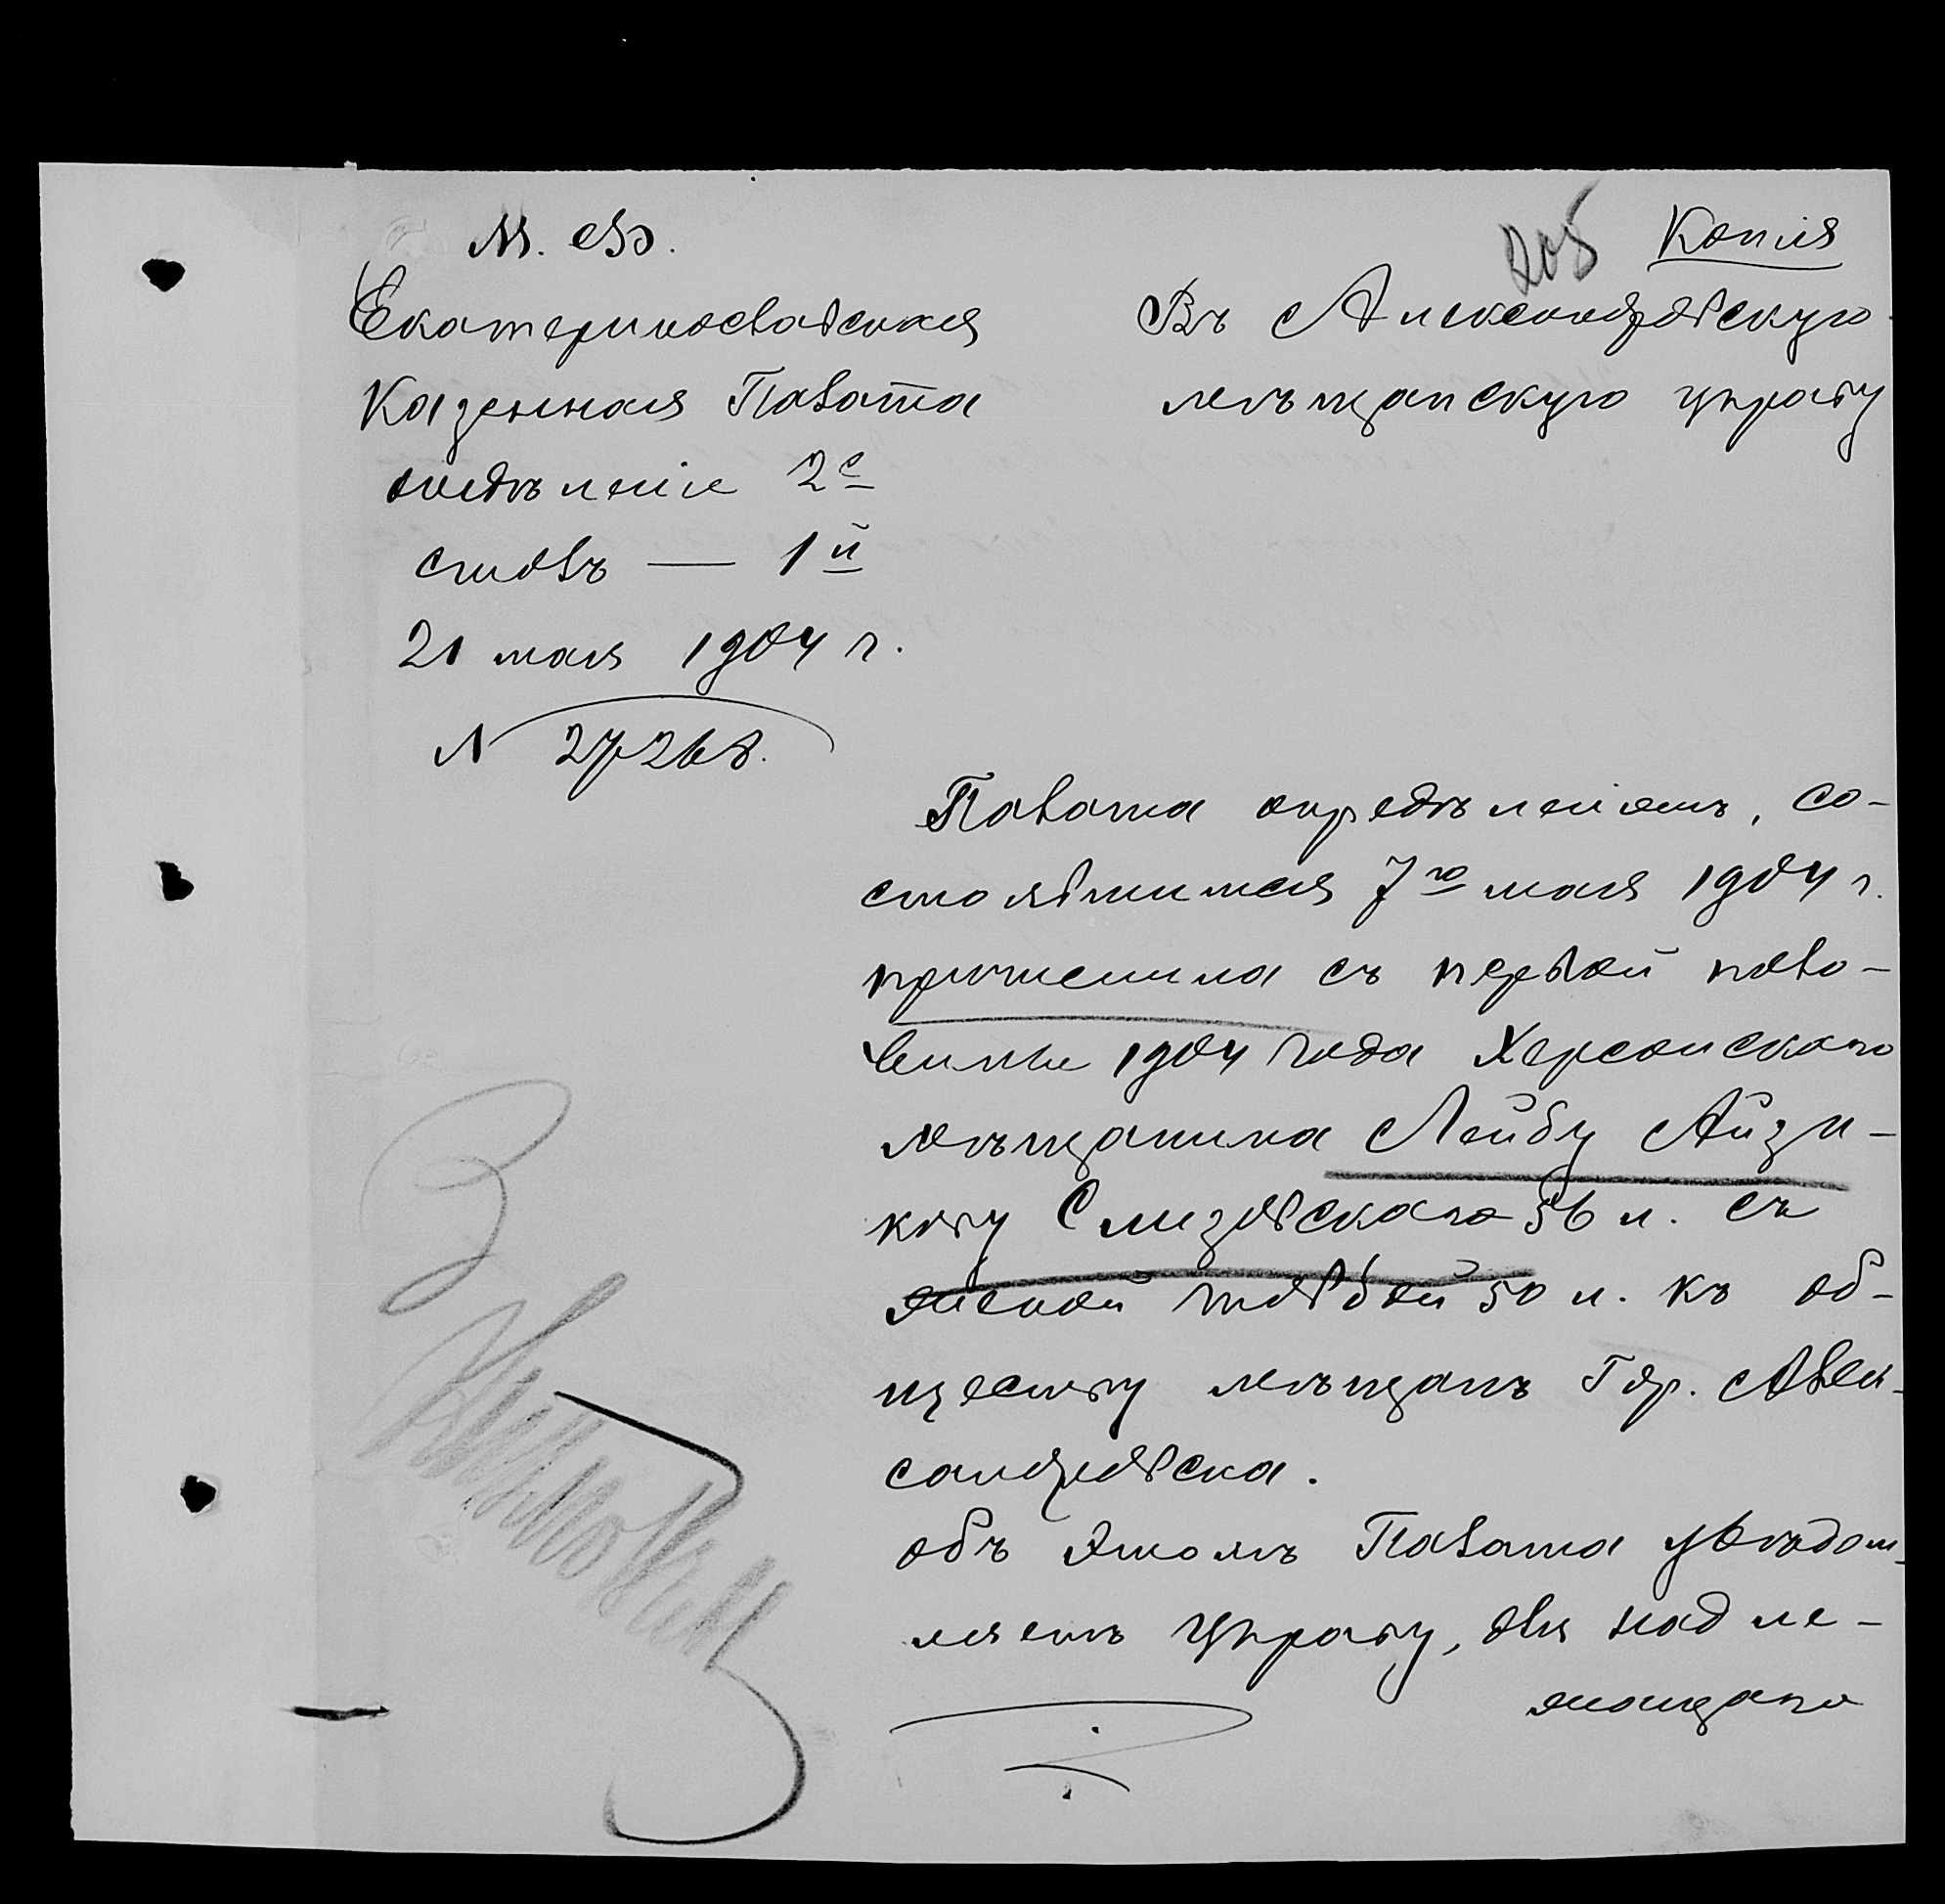 М. Ф.
205 Копія
Екатеринославская
Казенная Палата
отдѣленіе 2е
столъ — 1й
21 мая 1904 г.
N 27268.
Въ Александровскую
мѣщанскую управу
Палата опредѣленіемъ, со-
стоявшимся 7го мая 1904 г.
причислила съ первой поло-
вины 1904 года Херсонскаго
мѣщанина Лейбу Айзи-
кову Слизовскаго 56 л. съ
женой Товбой 50 л. къ об-
ществу мѣщанъ Гор. Алек-
сандровска.
объ этомъ Палата увѣдом-
ляетъ Управу, для надле-
жащаго